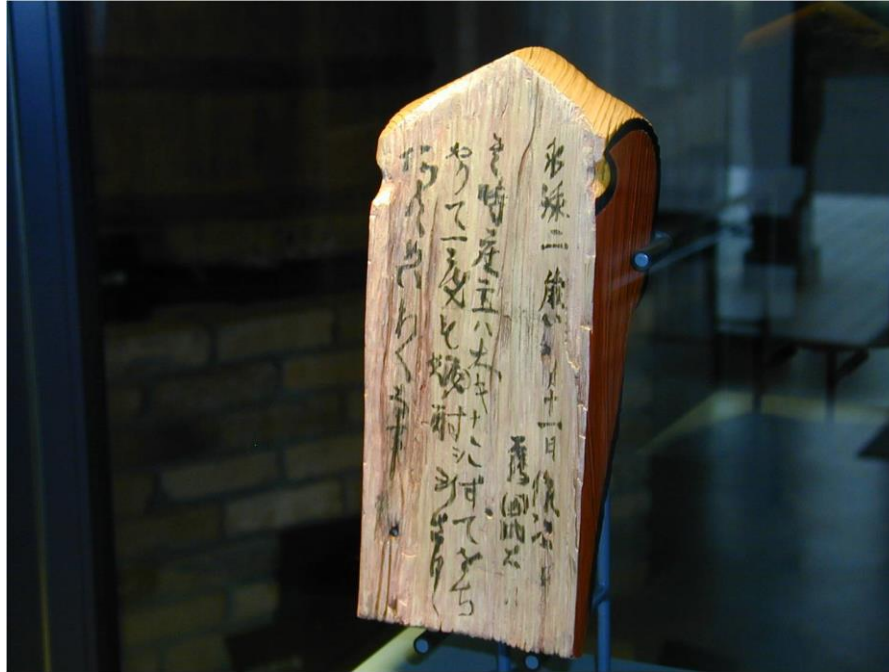 永禄二歳八月十一日 作次郎
鶴田助太郎
其時座主ハ大キナこすてをち
やりて一度も焼酎ヲ不被下候
何共めいわくな事哉